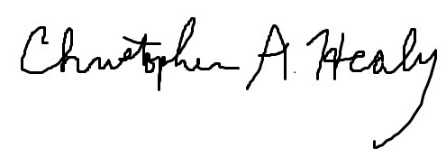 Christopher A. Healy